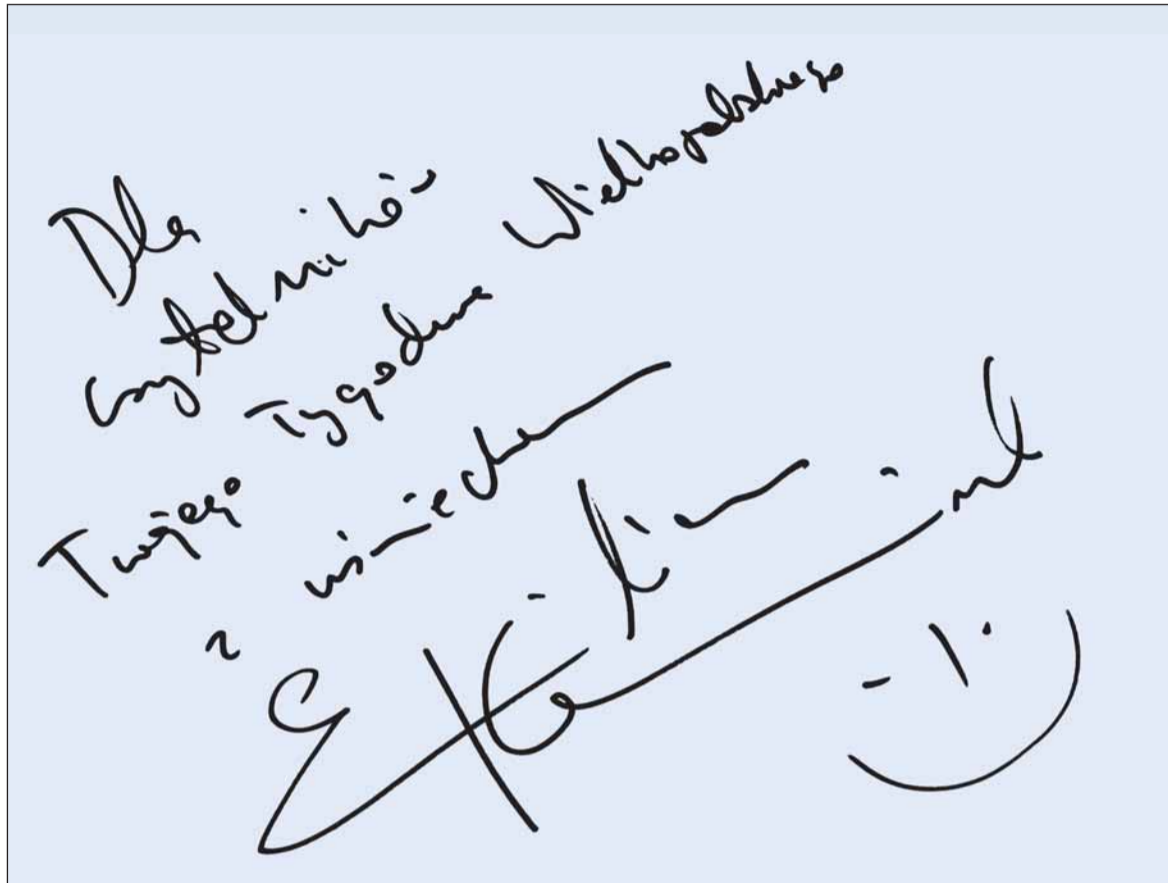 Dla
czytelników
Twojego Tygodnia Wielkopolskiego
z uśmiechem